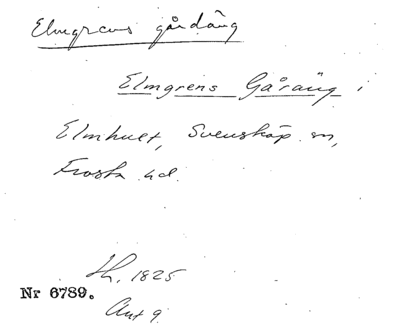 Elmgrens gårdäng
Elmgrens Gåräng i
Elmhult, Svensköp sn,
Frosta hd.
Lh. 1825
Nr 6789.
Akt 9